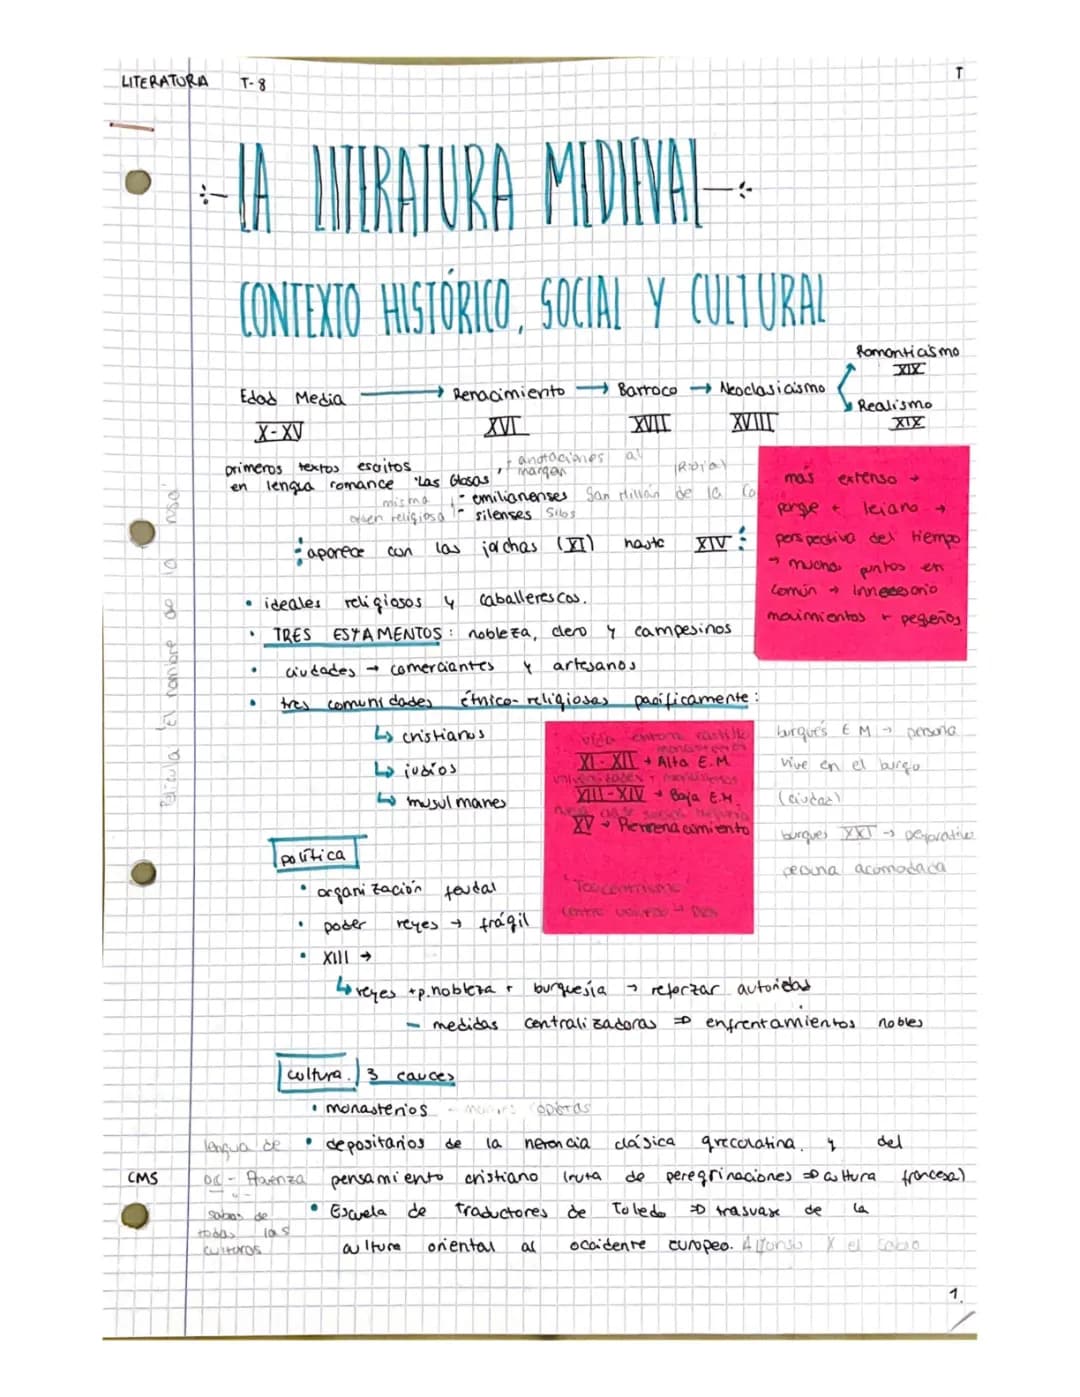 LITERATURA T-8
T
LA LITERATURA MEDIEVAL
CONTEXTO HISTÓRICO, SOCIAL Y CULTURAL
Romanticismo
XIX
Edad Media → Renacimiento → Barroco → Neoclasicismo
Realismo
X-XV XVI XVII XVIII XIX
primeros textos escritos
anotaciones al
margen
en lengua romance "Las Glosas"
misma
orden religiosa
- emilianenses San Millán de la
- silenses Silos
aparece con las jarchas (XI) hasta XIV
más extenso →
porque + lejano →
perspectiva del tiempo
→ muchos puntos en
común → innecesario
movimientos + pequeños
Película "El nombre de la rosa"
• ideales religiosos y caballerescos.
• TRES ESTAMENTOS: nobleza, clero y campesinos
• ciudades → comerciantes y artesanos
• tres comunidades étnico-religiosas pacíficamente:
↳ cristianos
↳ judíos
↳ musulmanes
monasterios
XI-XII → Alta E.M
universidades +
XIII-XIV → Baja E.M.
XV → Prerrenacimiento
"Teocentrismo"
centro universo → Dios
burgués E M → persona
vive en el burgo
(ciudad)
burgués XXI →
persona acomodada
política
• organización feudal
• poder reyes → frágil
• XIII →
↳ reyes +p.nobleza + burguesía → reforzar autoridad
- medidas centralizadoras ⇒ enfrentamientos nobles
cultura. 3 cauces
• monasterios - monjes copistas
• depositarios de la herencia clásica grecolatina, y del
pensamiento cristiano (ruta de peregrinaciones ⇒ cultura francesa)
• Escuela de traductores de Toledo ⇒ trasvase de la
cultura oriental al occidente europeo. Alfonso X el Sabio
lengua de
oc - Provenza
sabas de
todas las
culturas
CMS
1.